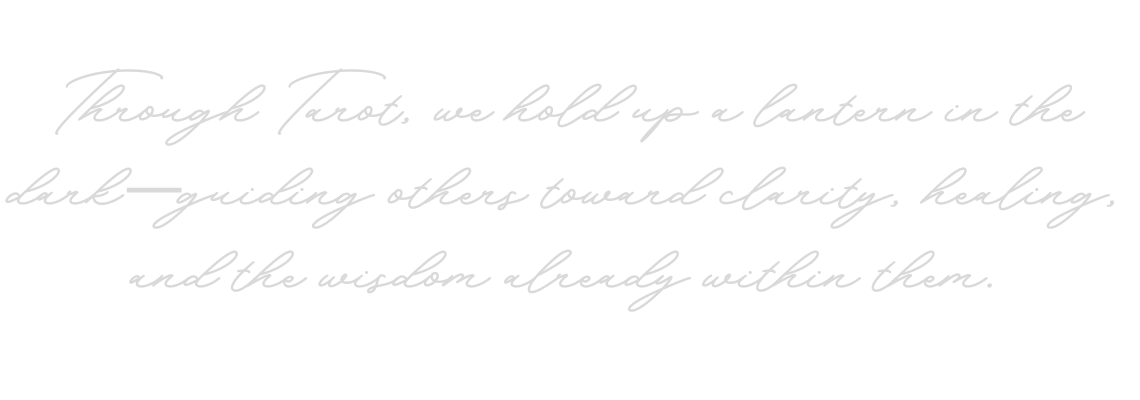 Through Tarot, we hold up a lantern in the
dark—guiding others toward clarity, healing,
and the wisdom already within them.